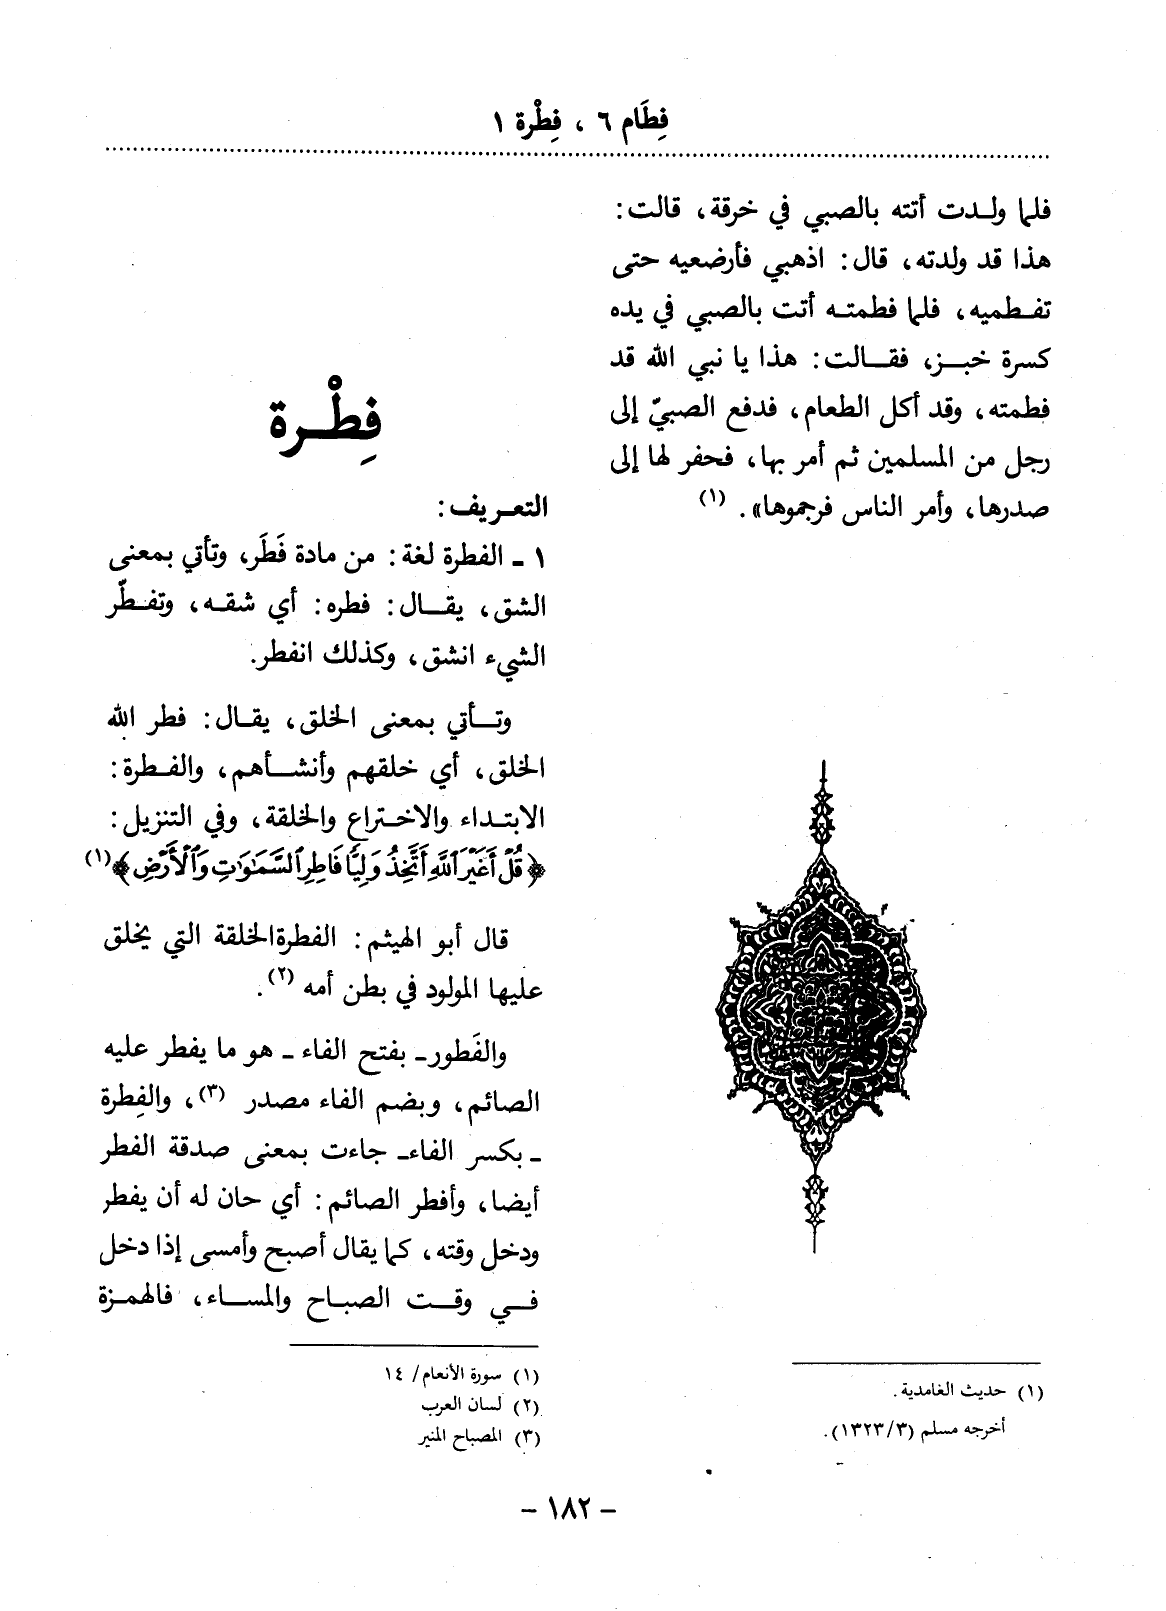 فِطَام ٦ ، فِطْرة ١
فلما ولدت أتته بالصبي في خرقة، قالت:
هذا قد ولدته، قال: اذهبي فأرضعيه حتى
تفطميه، فلما فطمته أتت بالصبي في يده
كسرة خبز، فقالت: هذا يا نبي الله قد
فطمته، وقد أكل الطعام، فدفع الصبيّ إلى
رجل من المسلمين ثم أمر بها، فحفر لها إلى
صدرها، وأمر الناس فرجموها». (١)
(١) حديث الغامدية.
أخرجه مسلم (٣/ ١٣٢٣).
فِطْرة
التعريف:
١ ـ الفطرة لغة: من مادة فَطَر، وتأتي بمعنى
الشق، يقال: فطره: أي شقه، وتفطّر
الشيء انشق، وكذلك انفطر.
وتأتي بمعنى الخلق، يقال: فطر الله
الخلق، أي خلقهم وأنشأهم، والفطرة:
الابتداء والاختراع والخلقة، وفي التنزيل:
﴿قُلْ أَغَيْرَ ٱللَّهِ أَتَّخِذُ وَلِيًّا فَاطِرِ ٱلسَّمَٰوَٰتِ وَٱلْأَرْضِ﴾ (١)
قال أبو الهيثم: الفطرة الخلقة التي يخلق
عليها المولود في بطن أمه (٢).
والفَطور ـ بفتح الفاء ـ هو ما يفطر عليه
الصائم، وبضم الفاء مصدر (٣)، والفِطرة
ـ بكسر الفاء ـ جاءت بمعنى صدقة الفطر
أيضا، وأفطر الصائم: أي حان له أن يفطر
ودخل وقته، كما يقال أصبح وأمسى إذا دخل
في وقت الصباح والمساء، فالهمزة
(١) سورة الأنعام/ ١٤
(٢) لسان العرب
(٣) المصباح المنير
ـ ١٨٢ ـ